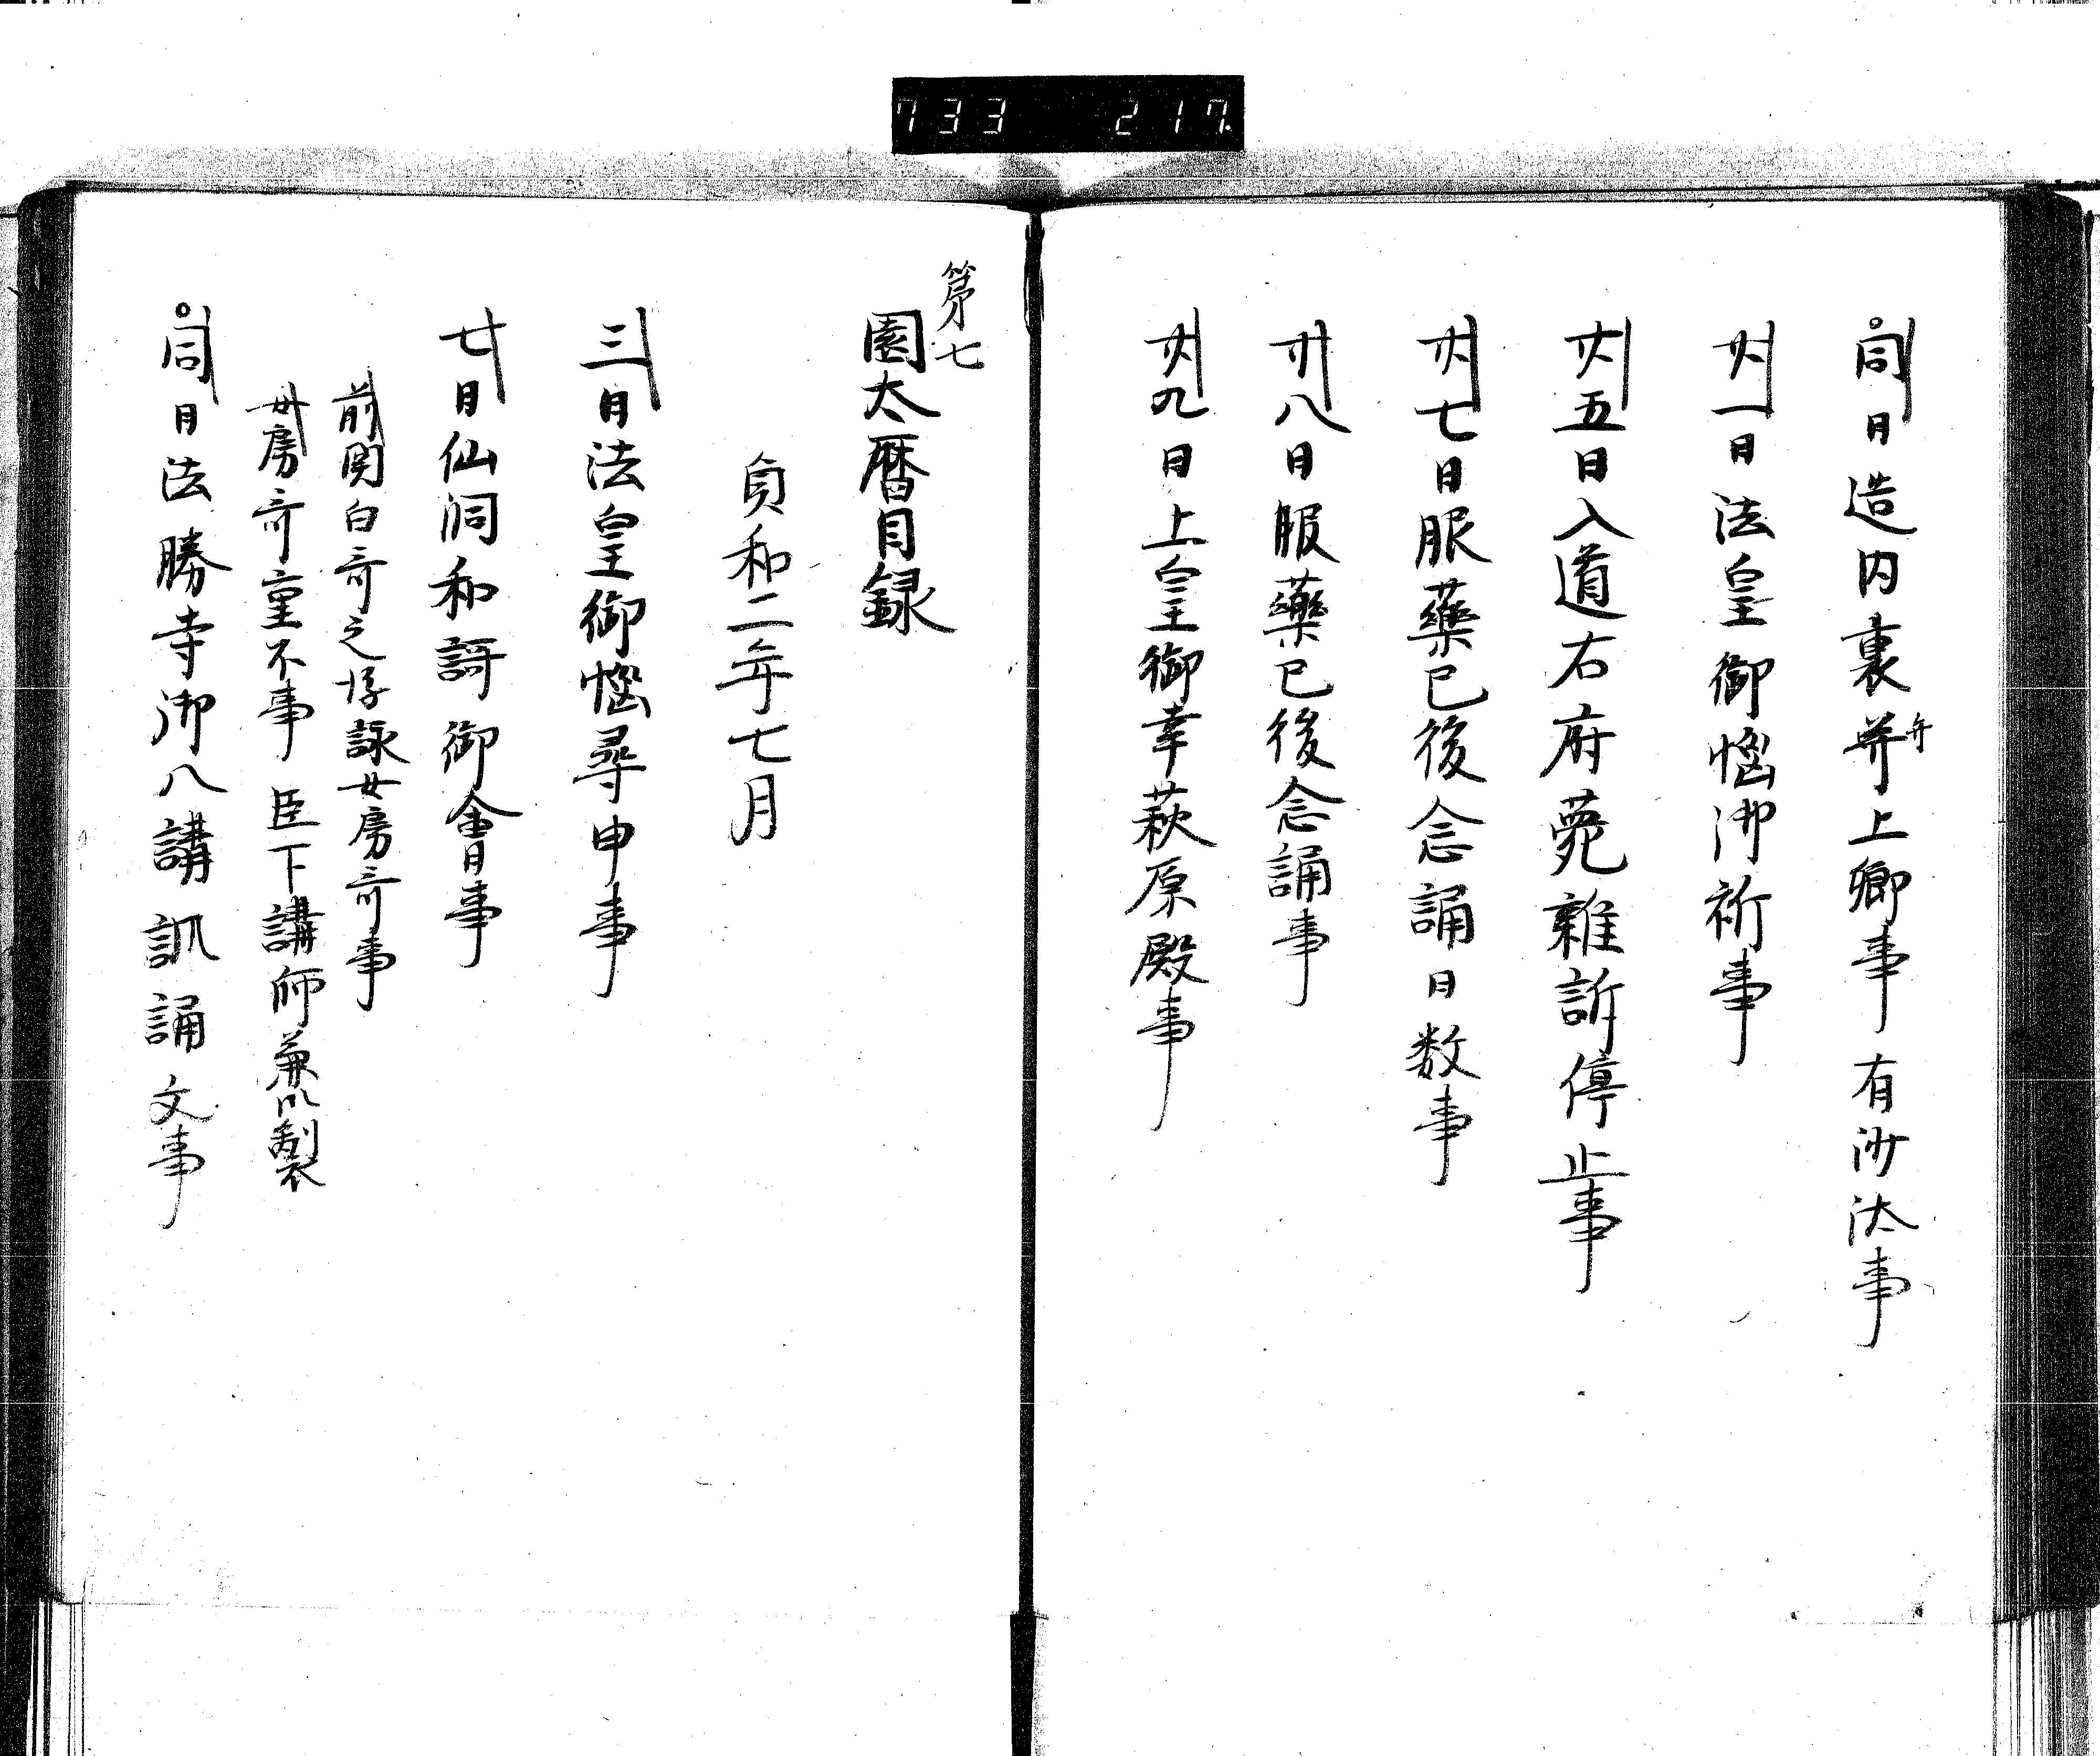 733 217
同日造内裏并上卿事有沙汰事
弁
廿一日法皇御悩御祈事
廿五日入道右府薨雑訴停止事
廿七日服藥已後念誦日数事
廿八日服藥已後念誦事
廿九日上皇御幸萩原殿事
第七
園太暦目録
貞和二年七月
三日法皇御悩尋申事
七日仙洞和謌御會事
前関白哥之時詠女房哥事
女房哥重不事 臣下講師兼御製
同日法勝寺御八講諷誦文事